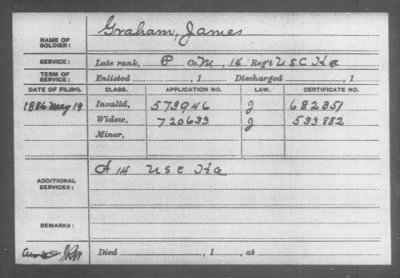 NAME OF SOLDIER: Graham, James
SERVICE: Late rank, P Co. M, 14 Reg't U S C Ha
TERM OF SERVICE: Enlisted , 1 Discharged , 1
DATE OF FILING. CLASS. APPLICATION NO. LAW. CERTIFICATE NO.
1886 May 19 Invalid, 573946 J 682351
Widow, 720633 J 533882
Minor,
ADDITIONAL SERVICES: A 14 U S C Ha
REMARKS:
Died , 1 , at